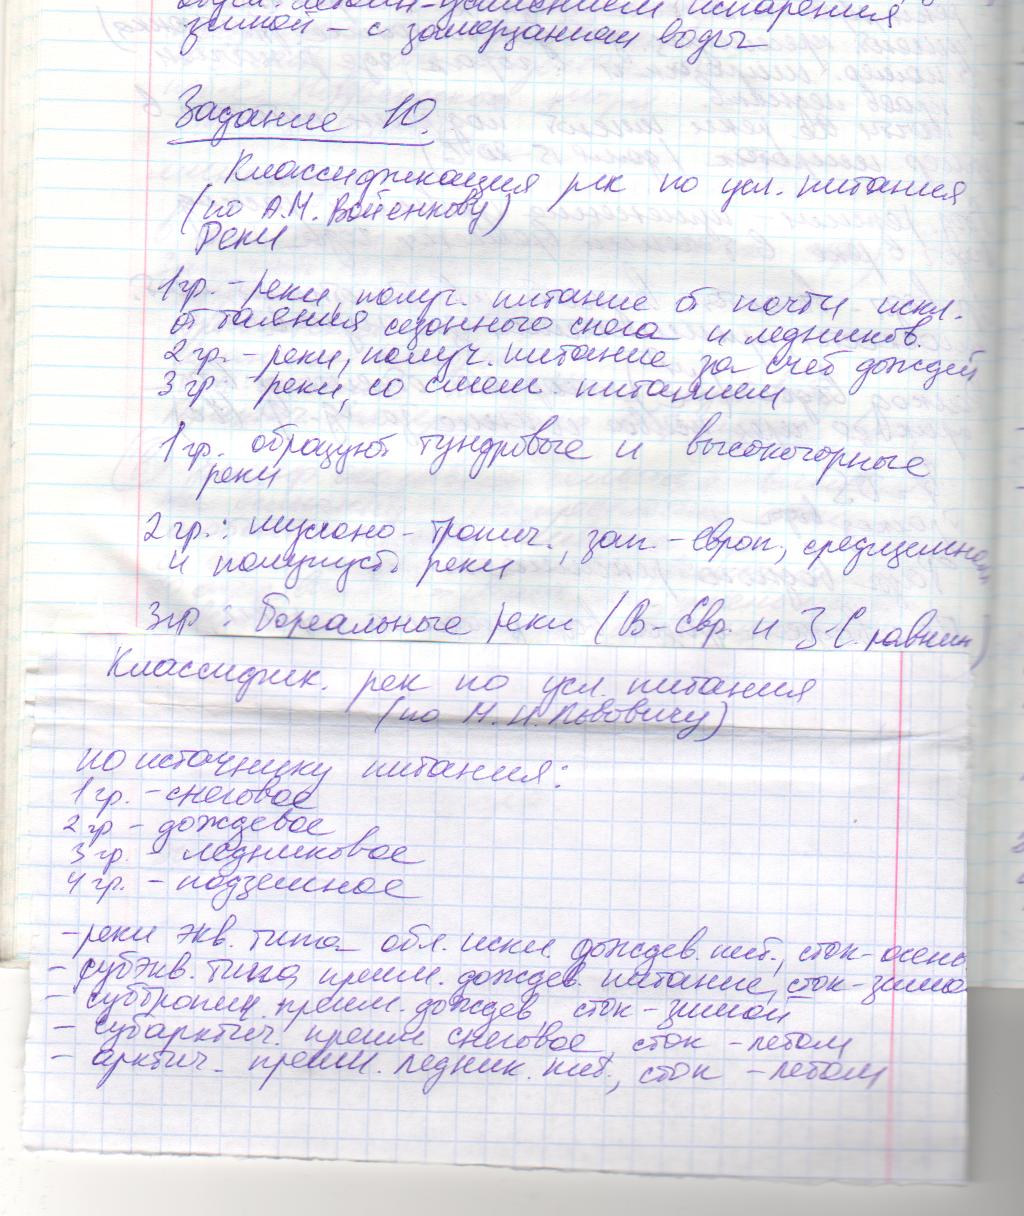 зимой – с замерзанием воды
Задание 10.
Классификация рек по усл. питания
(по А.М. Войенкову)
Реки
1 гр. – реки, получ. питание от почти искл.
от таяния сезонного снега и ледников.
2 гр. – реки, получ. питание за счёт дождей
3 гр – реки, со смеш. питанием
1 гр. образуют тундровые и высокогорные
реки
2 гр.: муссоно-тропич., зап.-Европ., средиземном
и полупуст. реки
3 гр: Бореальные реки (В-Евр. и З-С. равнин)
Классифик. рек по усл. питания
(по М.И. Львовичу)
по источнику питания:
1 гр. – снеговое
2 гр – дождевое
3 гр. – ледниковое
4 гр. – подземное
– реки экв. типа обл. искл. дождев. пит., сток – осень
– субэкв. типа, преим. дождев. питание, сток – зимо
– субтропич. преим. дождев, сток – зимой
– субарктич. преим снеговое, сток – летом
– арктич. преим. ледник. пит., сток – летом